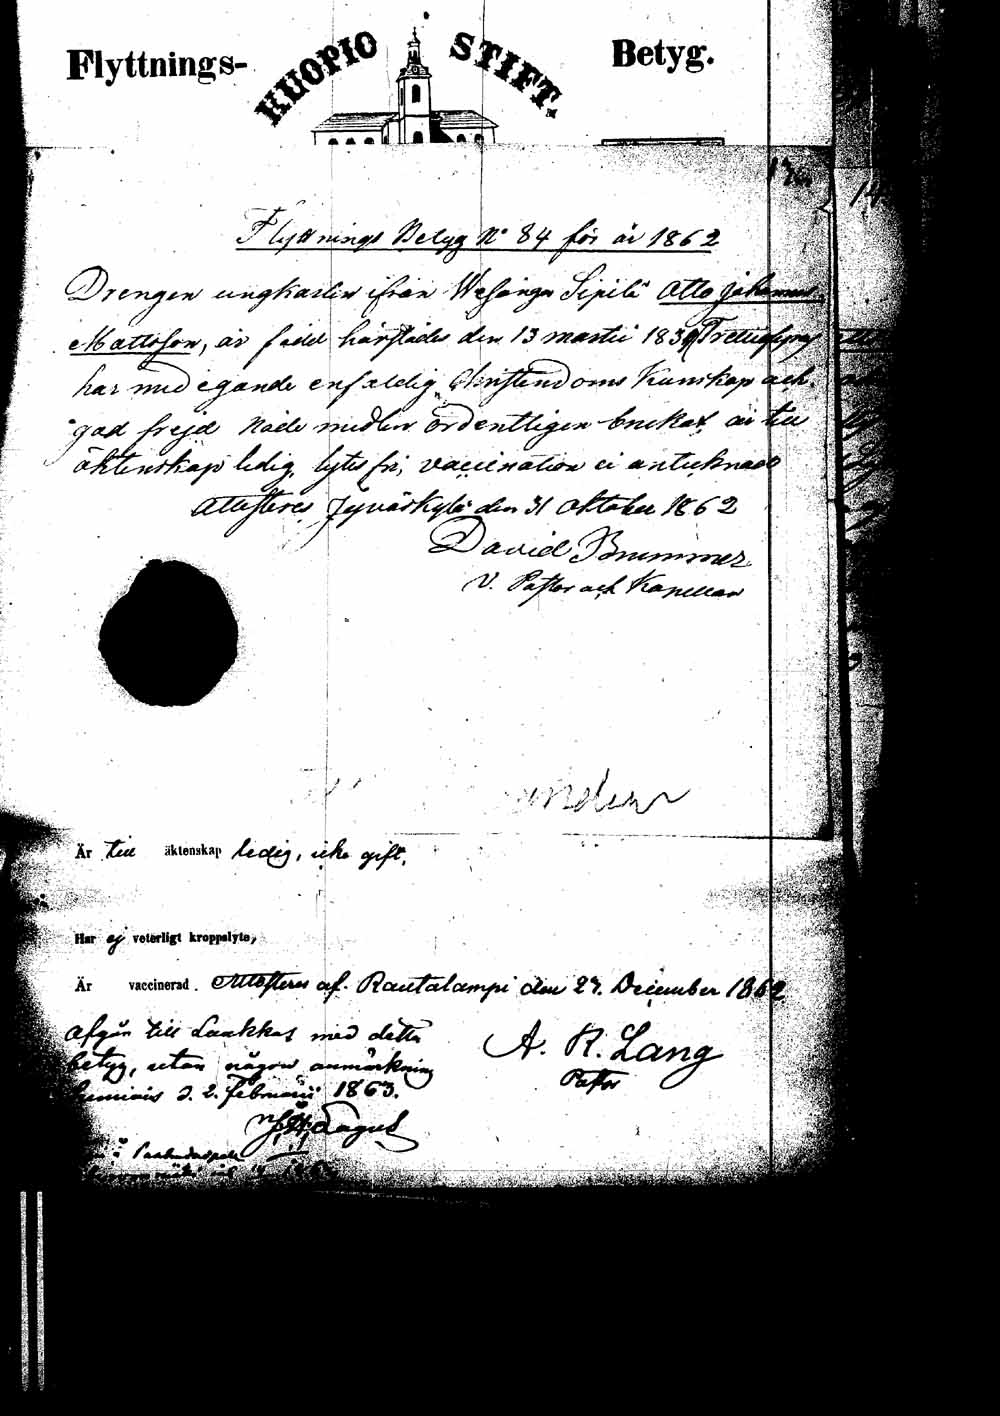 Flyttnings- KUOPIO STIFT. Betyg.
Flyttnings Betyg No 84 för år 1862
Drengen ungkarlen ifrån Wesanga Sipilä Otto Johannes
Mattsson, är född härstädes den 13 martii 183
har med egande enfaldig Christendoms Kunskap och
god frejd Nåde medlen ordentligen brukat, är till
äktenskap ledig, lytes fri, vaccination ei antecknad
Attesteres Jyväskylä den 31 Oktober 1862
David Brummer
V. Pastor och Kapellan
Är till äktenskap ledig, icke gift.
Har ej veterligt kroppslyte,
Är vaccinerad. Attesteres af. Rautalampi den 27. December 1862
A. R. Lang
Pastor
Afgår till Laukkas med detta
betyg, utan någon anmärkning
d. 2. Februarii 1863.